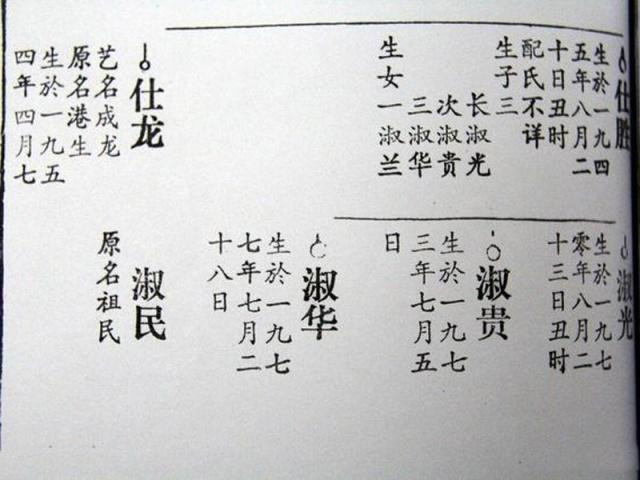 仕胜
生於一九四
五年八月二
十日丑时
配氏不详
生子三
长淑光
次淑贵
三淑华
生女一淑兰
仕龙
艺名成龙
原名港生
生於一九五
四年四月七
淑光
生於一九七
零年八月二
十三日丑时
淑贵
生於一九七
三年七月五
日
淑华
生於一九七
七年七月二
十八日
淑民
原名祖民